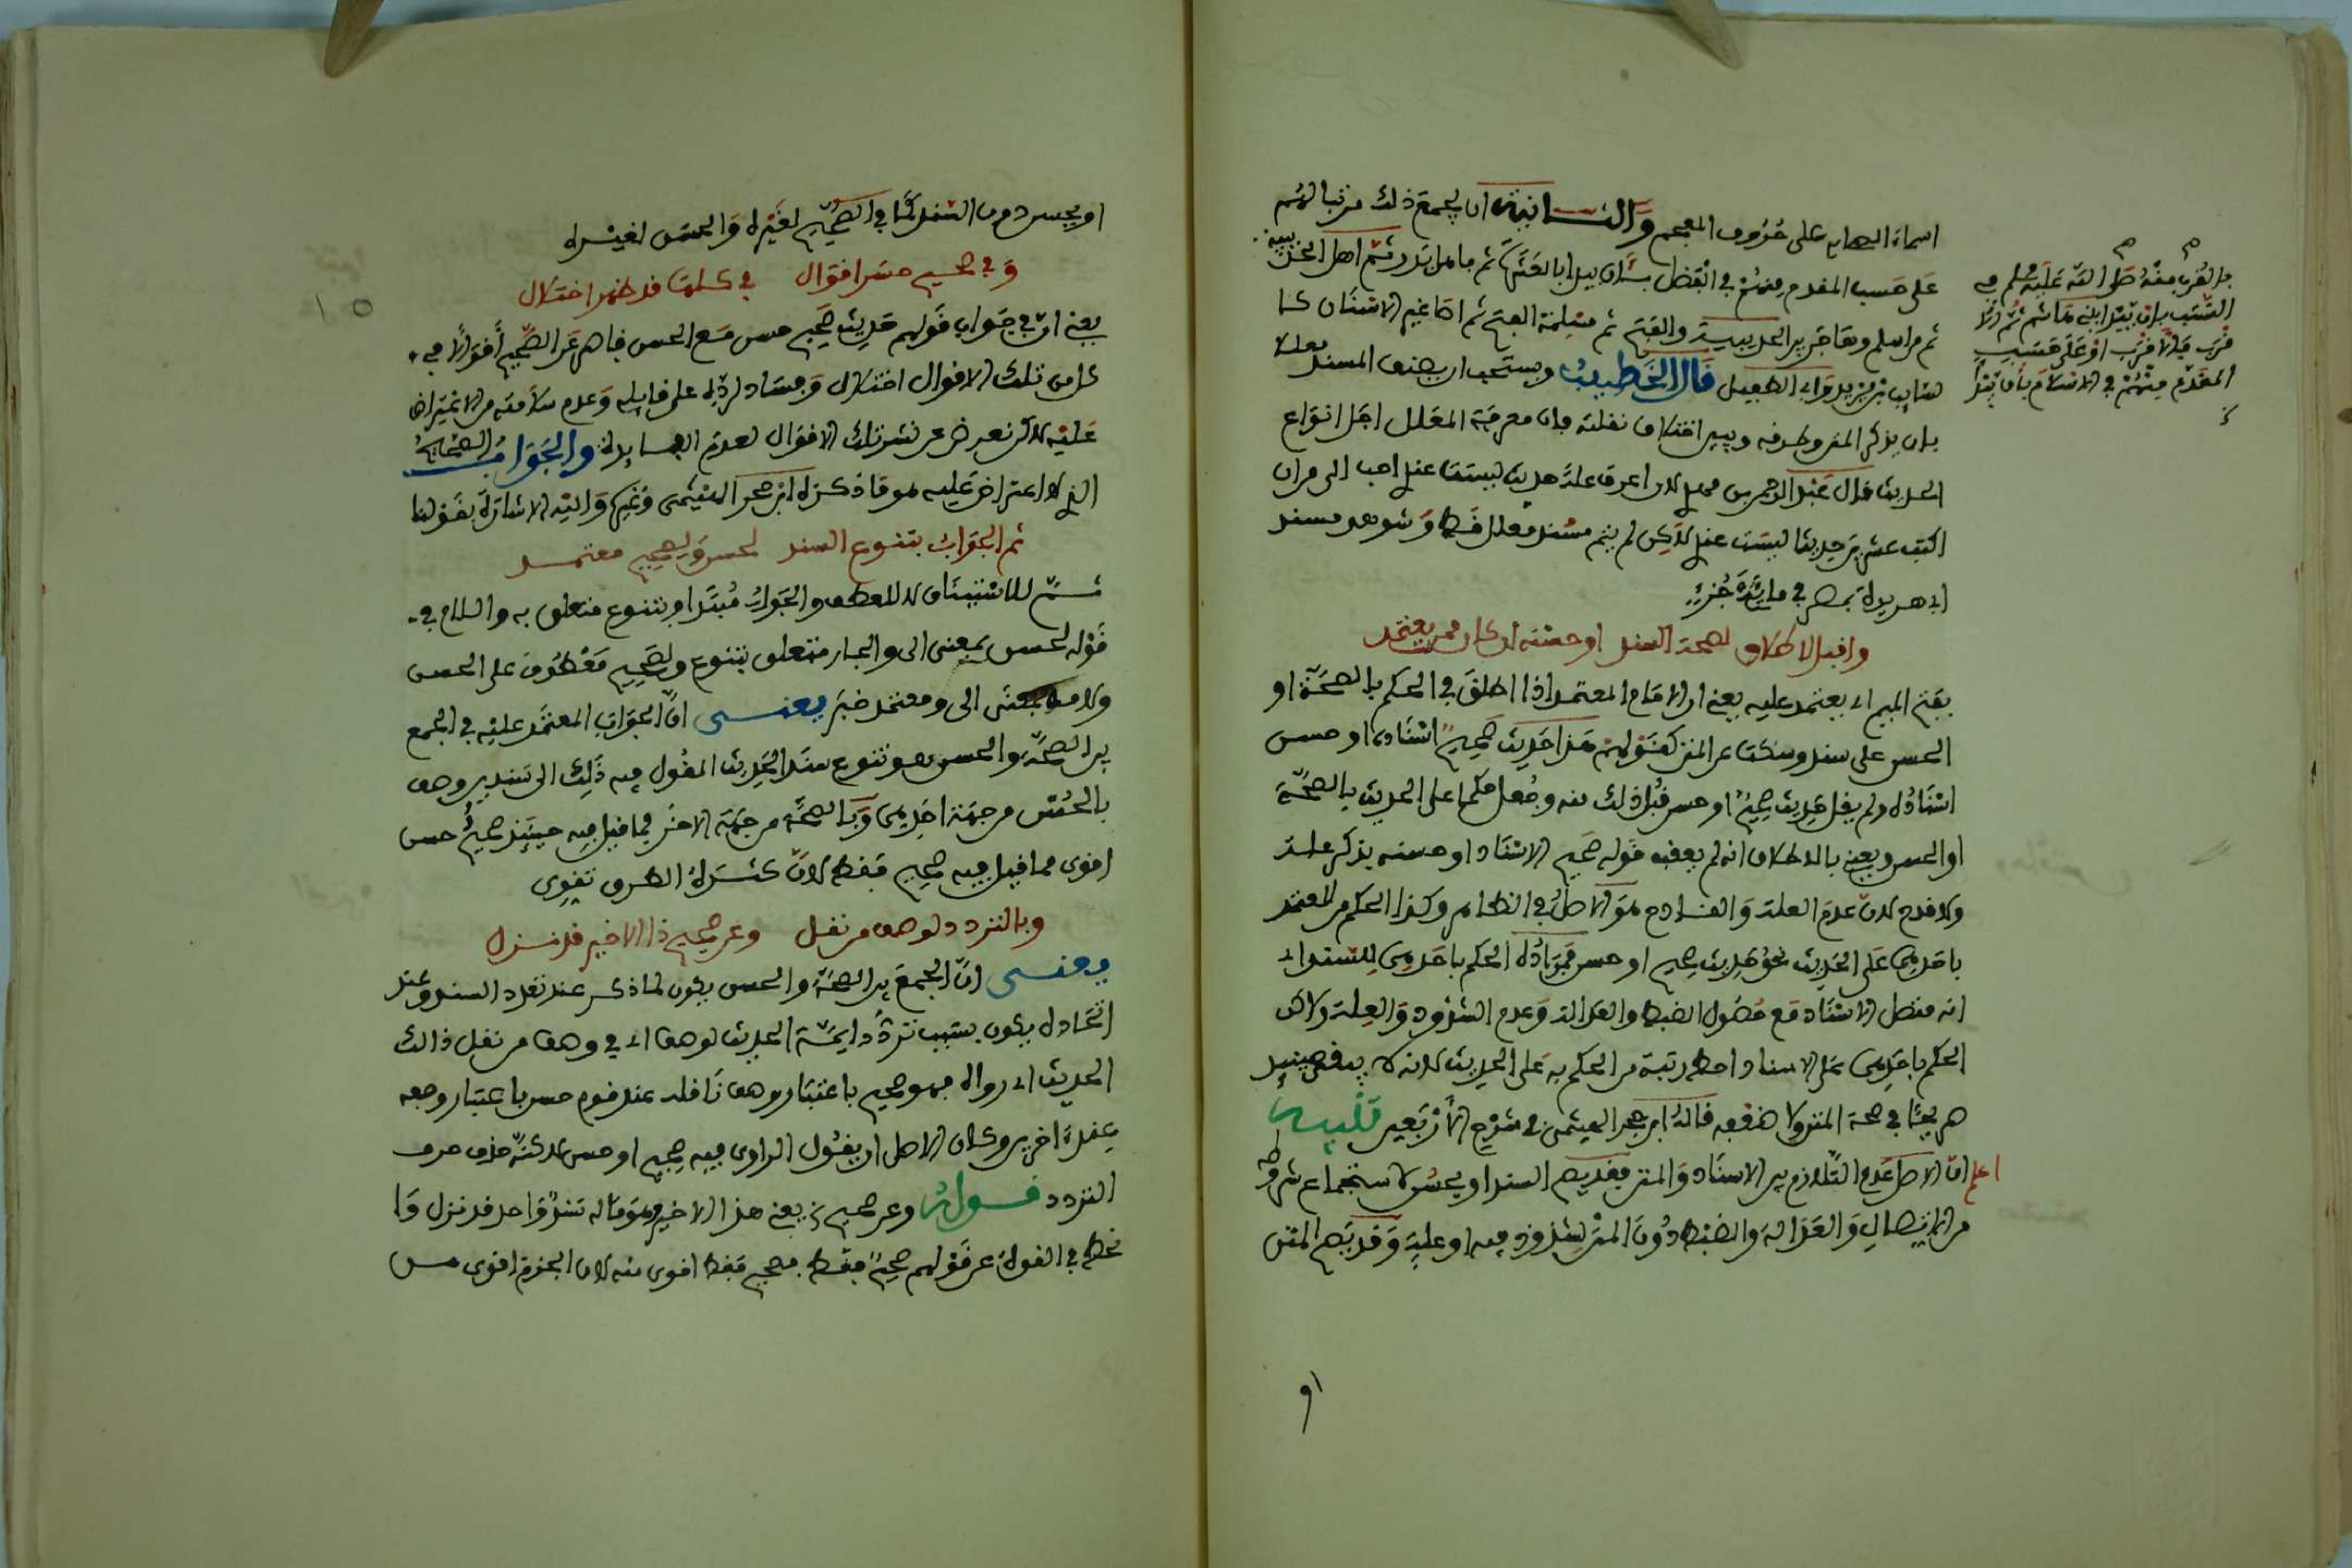 اسماء الصحابة على حروف المعجم والثانية ان يجمع ذلك مرتبا لهم
على حسب المقدم منهم في الفضل بأن يبدأ بالعشرة ثم بأهل بدر ثم اهل الحديبية
ثم من اسلم وهاجر بين الحديبية والفتح ثم مسلمة الفتح ثم اصاغر الاسنان كا
لسايب بن يزيد وابي الطفيل قال الخطيب ويستحب ان يصنف المسند معللا
بان يذكر المتن وطرفه ويبين اختلاف نقلته فان معرفة المعلل اجل انواع
الحديث قال عبد الرحمن بن مهدي لان اعرف علة حديث ليست عندي احب الي من ان
اكتب عشرين حديثا ليست عندي لاكن لم يتم مسند معلل قط وشوهد مسند
ابي هريرة بمصر في مائة جزء
واقبل الاطلاق لصحة السند او حسنه ان كان ممن يعتمد
بفتح الميم اي يعتمد عليه يعني ان الامام المعتمد اذا اطلق في الحكم بالصحة او
الحسن على سند وسكت عن المتن كقولهم هذا حديث صحيح اسناده او حسن
اسناده ولم يقل حديث صحيح او حسن قبل ذلك منه وجعل حكما على الحديث بالصحة
او الحسن ويعني بالاطلاق انه لم يعقب قوله صحيح الاسناد او حسنه بذكر علة
ولا قدح لان عدم العلة والقادح هو الاصل في الظاهر وكذا الحكم من المعتمد
باحدهما على الحديث نحو حديث صحيح او حسن فمراده الحكم باحدهما للسند اي
انه متصل الاسناد مع حصول الضبط والعدالة وعدم الشذوذ والعلة ولاكن
الحكم باحدهما على الاسناد احط رتبة من الحكم به على الحديث لانه لا يبقى حينئذ
صريحا في صحة المتن ولا ضعفه قاله ابن حجر الهيثمي في شرح الأربعين تنبيه
اعلم ان الاصل عدم التلازم بين الاسناد والمتن فقد يصح السند او يحسن لاستجماع شروطه
من الاتصال والعدالة والضبط دون المتن لشذوذ فيه او علة وقد يصح المتن
بالقرب منه صلى الله عليه وسلم في
النسب بأن يبدأ ببني هاشم ثم الا
قرب فالاقرب او على حسب
المقدم منهم في الاسلام بأن يبدأ
او يحسن دون السند كما في الصحيح لغيره والحسن لغيره
وفي صحيح حسن اقوال في كلها قد ظهر اختلال
يعني ان في جواب قولهم حديث صحيح حسن مع الحسن قاصر عن الصحيح أقوالا في
كل من تلك الاقوال اختلال وفساد لرده على قايله وعدم سلامته من الاعتراض
عليه لاكن نعرض عن نشر تلك الاقوال لعدم الفايدة والجواب الصحيح
الذي لا اعتراض عليه هو ما ذكره ابن حجر الهيثمي وغيره واليه الاشارة بقولنا
ثم الجواب بتنوع السند لحسن وصحيح معتمد
ثم للاستيناف لا للعطف والجواب مبتدأ وبتنوع متعلق به واللام في
قوله لحسن بمعنى الى والجار متعلق بتنوع وصحيح معطوف على الحسن
ولامه بمعنى الى ومعتمد خبر يعني ان الجواب المعتمد عليه في الجمع
بين الصحة والحسن هو تنوع سند الحديث المقول فيه ذلك الى سندين وصف
بالحسن من جهة احدهما وبالصحة من جهة الاخر فما قيل فيه حينئذ صحيح حسن
اقوى مما قيل فيه صحيح فقط لان كثرة الطرق تقوي
وبالتردد لوصف من نقل وعن صحيح ذا الاخير قد نزل
يعني ان الجمع بين الصحة والحسن يكون لما ذكر عند تعدد السند وعند
اتحاده يكون بسبب تردد ايمة الحديث لوصف اي في وصف من نقل ذالك
الحديث اي رواه فهو صحيح باعتبار وصف ناقله عند قوم حسن باعتبار وصفه
عند اخرين وكان الاصل ان يقول الراوي فيه صحيح او حسن لاكنه حذف حرف
التردد قوله وعن صحيح الخ يعني هذا الاخير وهو ما له سند واحد قد نزل وا
نحط في القوة عن قولهم صحيح فقط فصحيح فقط اقوى منه لان الجزم اقوى من